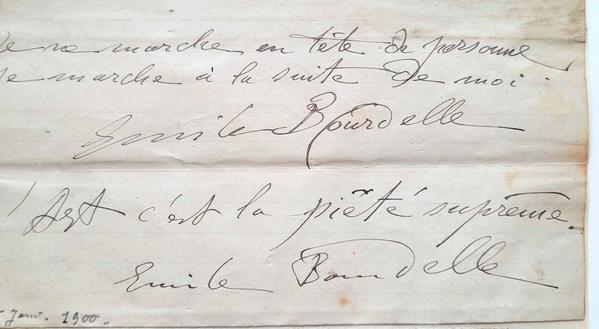 Je ne marche en tête de personne,
je marche à la suite de moi.
Emile Bourdelle
l'Art c'est la piété suprême.
Emile Bourdelle
Janv. 1900.